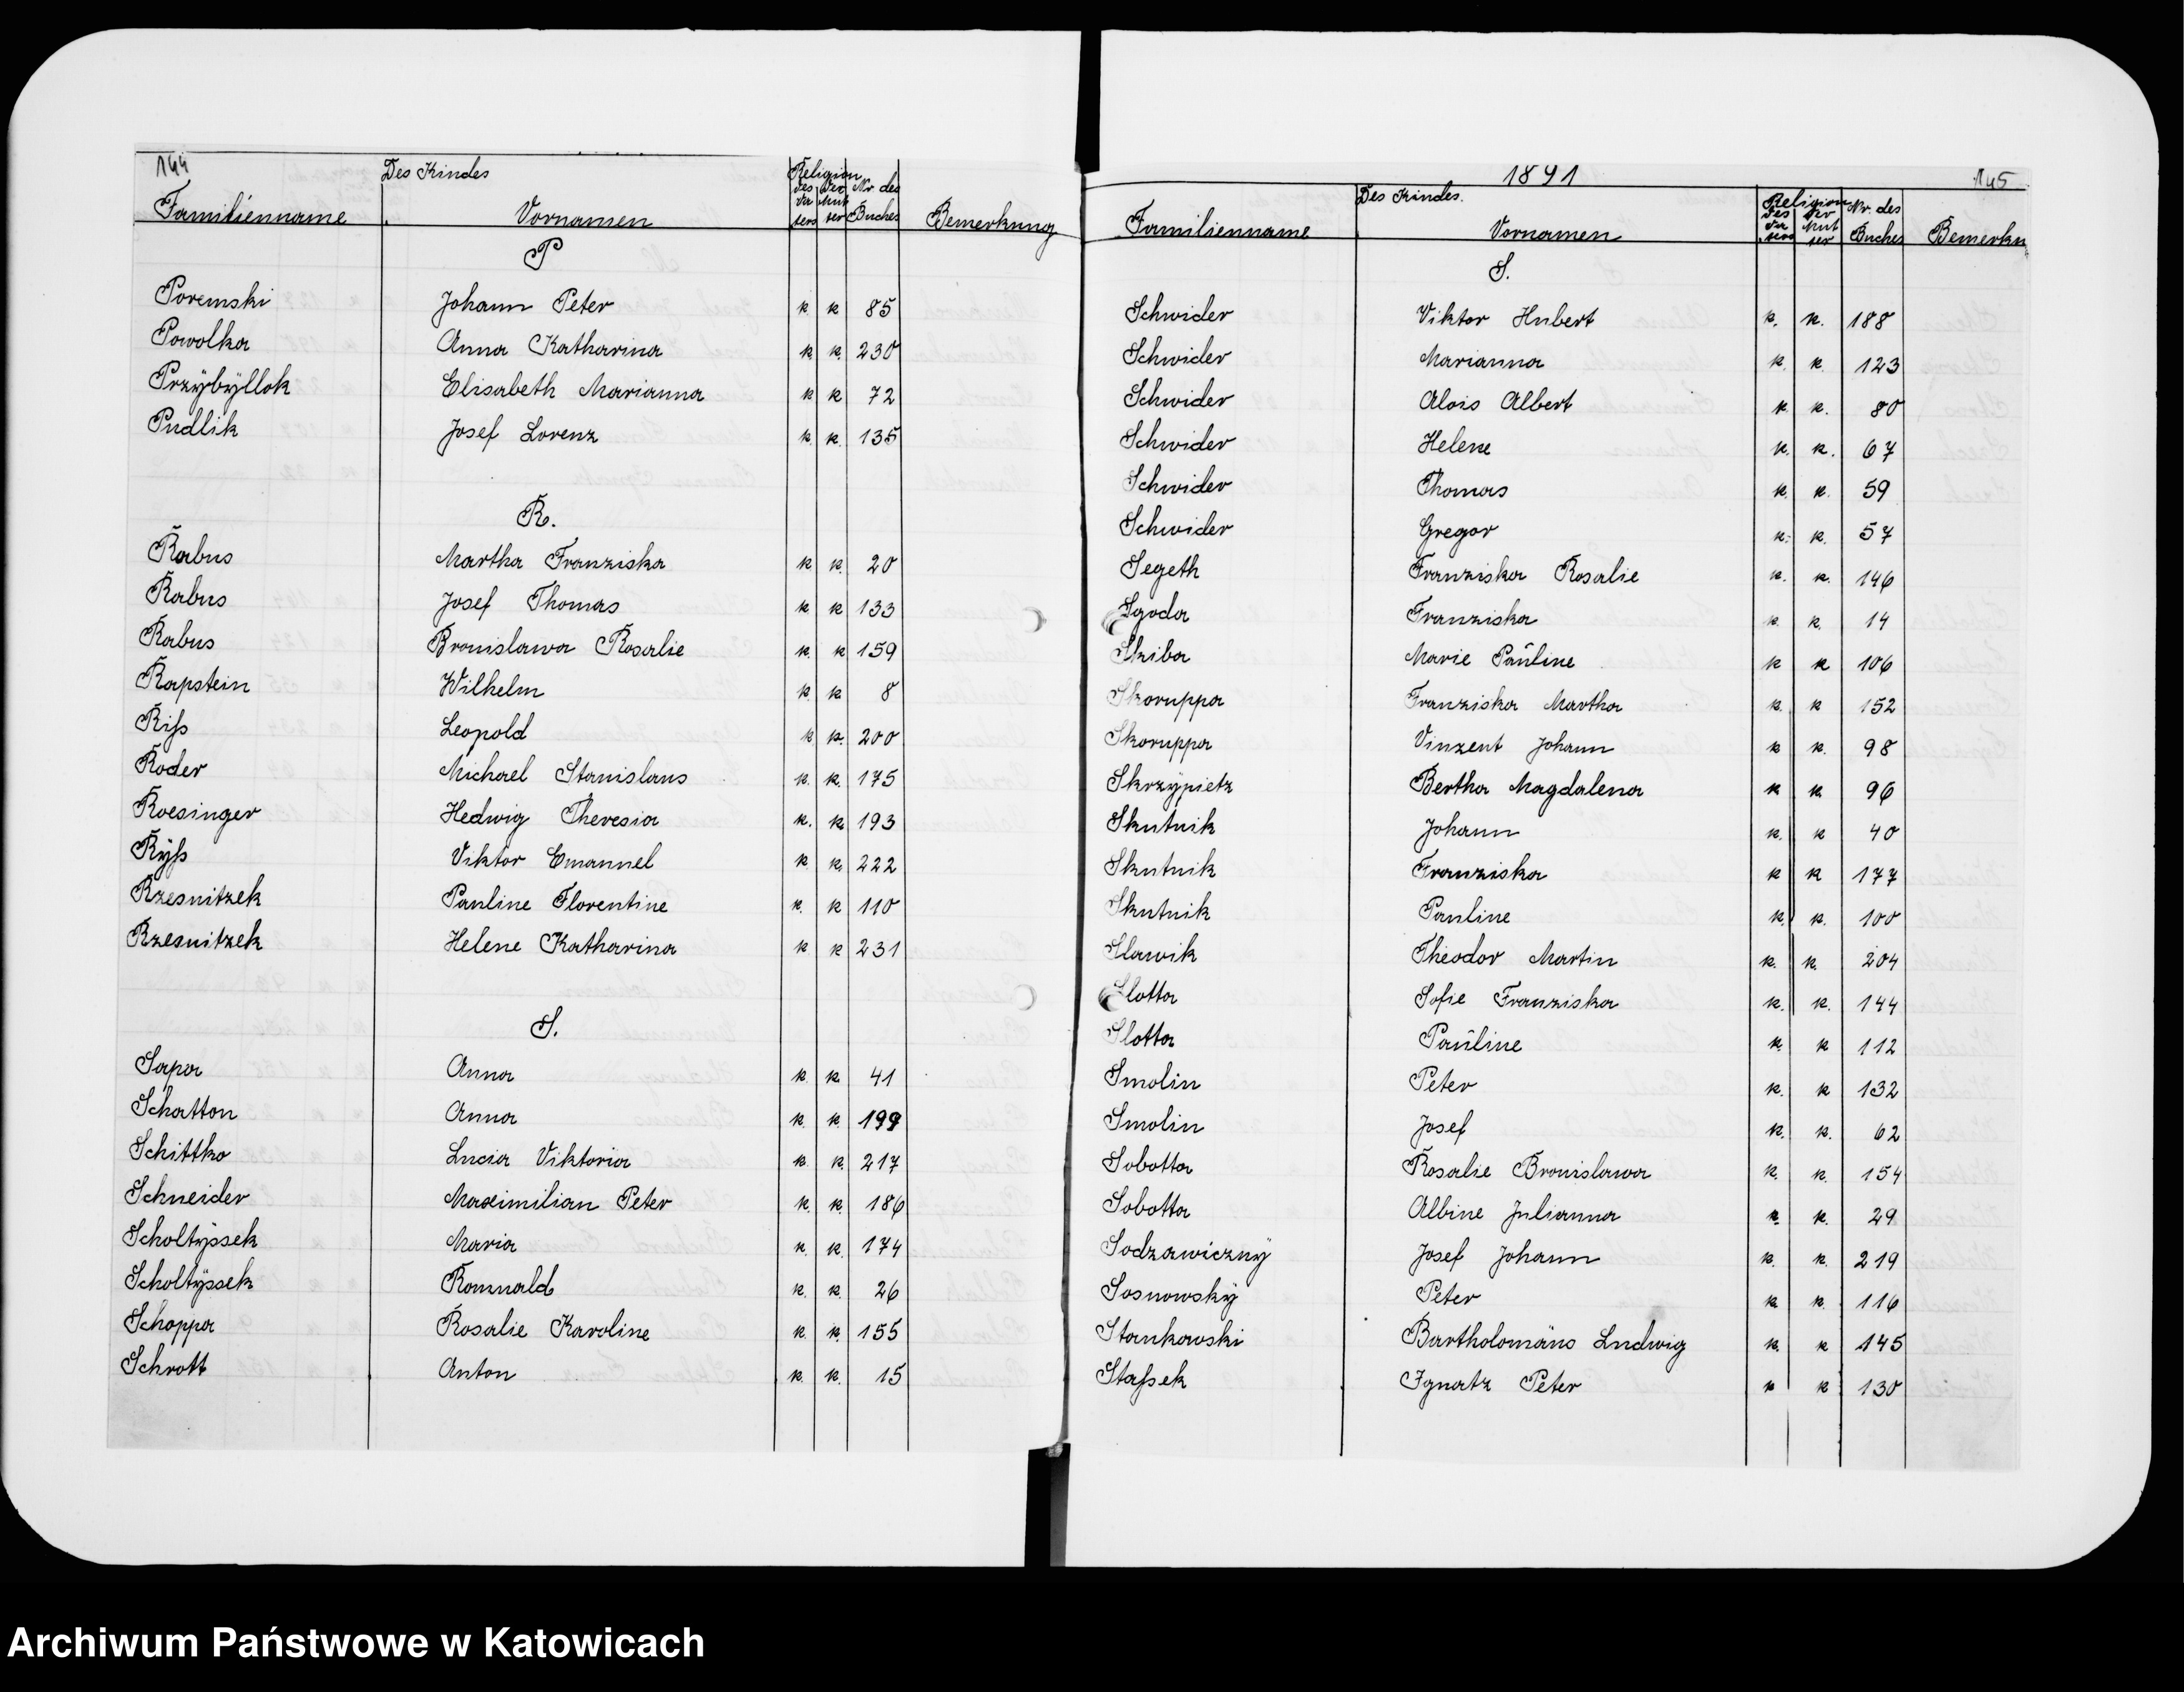 144
Des Kindes
Religion
Familienname Vornamen des Vaters der Mutter Nr. des Buches Bemerkung
P
Poremski Johann Peter k. k 85
Powolka Anna Katharina k k. 230
Przÿbÿllok Elisabeth Marianna k k 72
Pudlik Josef Lorenz k. k. 135
R.
Rabus Martha Franziska k k. 20
Rabus Josef Thomas k k 133
Rabus Bronislawa Rosalie k. k 159
Rapstein Wilhelm k. k 8
Riß Leopold k k. 200
Roder Michael Stanislaus k. k. 175
Roesinger Hedwig Theresia k. k 193
Rÿß Viktor Emanuel k k 222
Rzesnitzek Pauline Florentine k. k 110
Rzesnitzek Helene Katharina k k 231
S.
Sapa Anna k. k. 41
Schatton Anna k. k. 199
Schittko Lucia Viktoria k. k. 217
Schneider Maximilian Peter k. k. 186
Scholtÿssek Maria k. k. 174
Scholtÿssek Romuald k. k. 26
Schoppa Rosalie Karoline k. k. 155
Schrott Anton k. k. 15
1891
145
Des Kindes.
Religion
Familienname Vornamen des Vaters der Mutter Nr. des Buches Bemerku
S.
Schwider Viktor Hubert k. k. 188
Schwider Marianna k. k. 123
Schwider Alois Albert k. k. 80
Schwider Helene k. k. 67
Schwider Thomas k. k. 59
Schwider Gregor k. k. 57
Segeth Franziska Rosalie k. k. 146
Sgoda Franziska k. k. 14
Skiba Marie Paŭline k k 106
Skoruppa Franziska Martha k. k 152
Skoruppa Vinzent Johann k k. 98
Skrzÿpietz Bertha Magdalena k k 96
Skutnik Johann k. k 40
Skutnik Franziska k k 177
Skutnik Pauline k. k. 100
Slawik Theodor Martin k. k. 204
Slotta Sofie Franziska k. k. 144
Slotta Paŭline k. k 112
Smolin Peter k. k 132
Smolin Josef k. k. 62
Sobotta Rosalie Bronislawa k. k. 154
Sobotta Albine Julianna k. k. 29
Sodzawicznÿ Josef Johann k. k. 219
Sosnowskÿ Peter k k. 116
Stankowski Bartholomäus Ludwig k. k 145
Staßek Ignatz Peter k k 130
Archiwum Państwowe w Katowicach